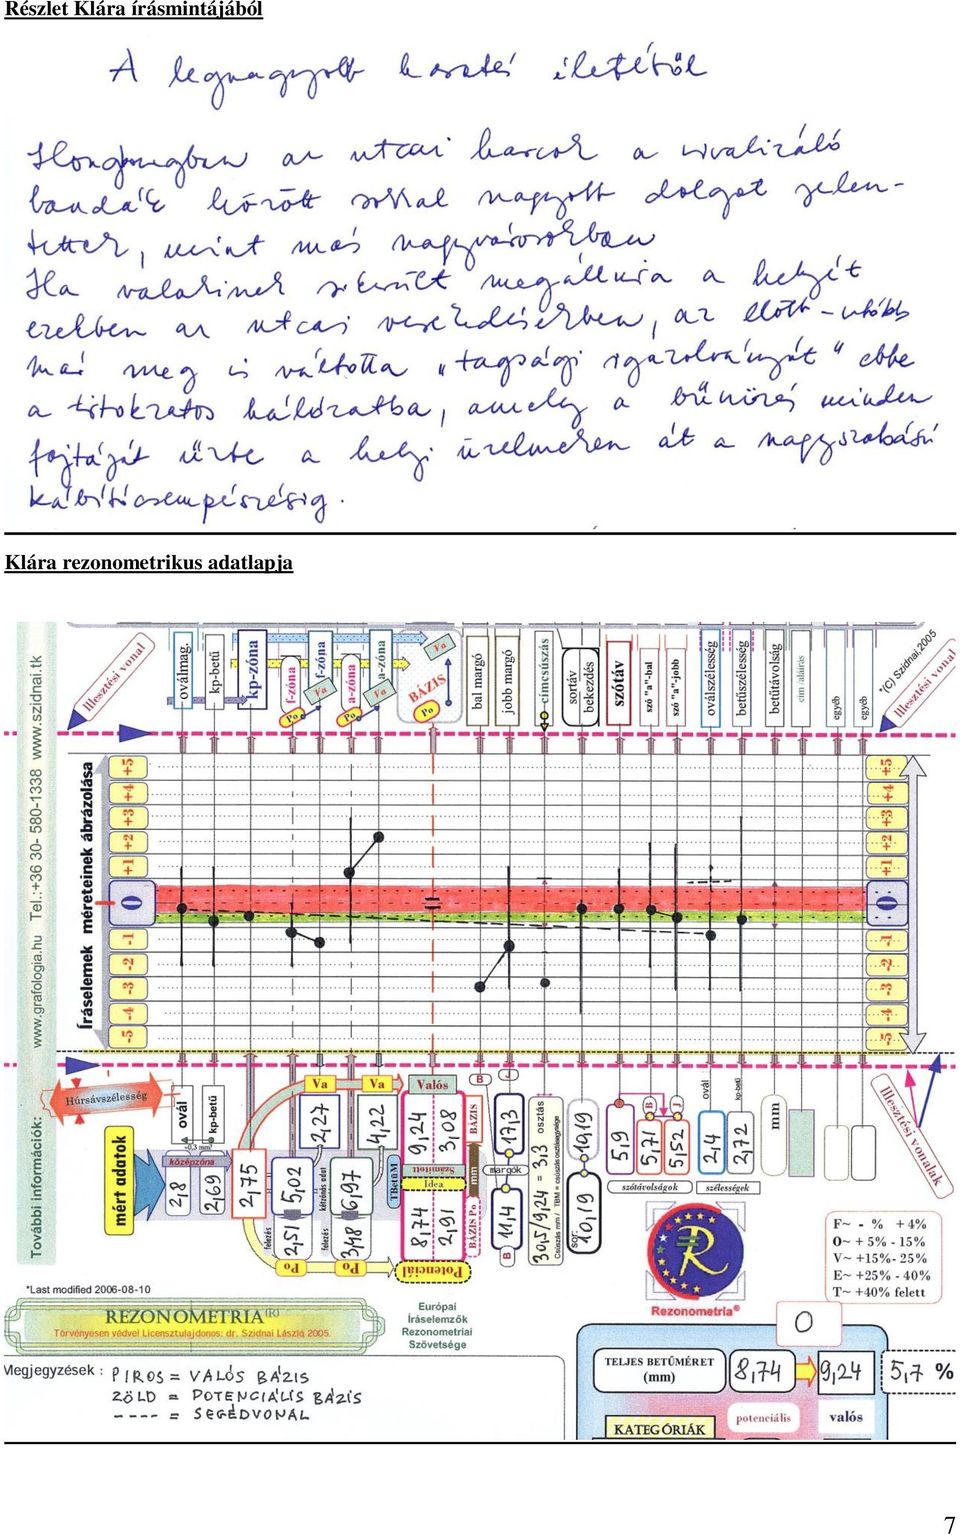 Részlet Klára írásmintájából
A legnagyobb harcos életéből
Hongkongban az utcai harcok a rivalizáló
bandák között sokkal nagyobb dolgot jelen-
tettek, mint más nagyvárosokban
Ha valakinek sikerült megállnia a helyét
ezekben az utcai verekedésekben, az előbb-utóbb
már meg is váltotta "tagsági igazolványát" ebbe
a titokzatos hálózatba, amely a bűnözés minden
fajtáját űzte a helyi üzelmeken át a nagyszabású
kábítócsempészésig.
Klára rezonometrikus adatlapja
További információk: www.grafologia.hu Tel.:+36 30- 580-1338 www.szidnai.tk
Illesztési vonal
-oválmag.
kp-betű
kp-zóna
f-zóna
Po
f-zóna
Va
a-zóna
Po
a-zóna
Va
BÁZIS
Po
Va
bal margó
jobb margó
címcsúszás
sortáv
bekezdés
szótáv
szó "a"-bal
szó "a"-jobb
oválszélesség
betűszélesség
betűtávolság
cím /aláírás
egyéb
egyéb
*(C) Szidnai,2005
Illesztési vonal
Íráselemek méreteinek ábrázolása
+5
+4
+3
+2
+1
0
-1
-2
-3
-4
-5
+5
+4
+3
+2
+1
0
-1
-2
-3
-4
-5
Húrsávszélesség
mért adatok
ovál
kp-betű
~0,3 mm
középzóna
2,8
2,69
2,75
2,51
5,02
felezés
2,27
Va
kétzónás adat
3,48
6,97
felezés
4,22
Va
TBetűM
Po
Po
Valós
9,24
3,08
Számított
Idea
8,74
2,91
Potenciál
B
BÁZIS
mm
BÁZIS Po
margók
B
11,4
17,3
30,5/9,24 = 3,3
osztás
Csúszás mm / TBM = csúszás osztásegysége
10,19
19,19
5,9
B
5,71
J
5,52
szótávolságok
ovál
2,4
kp-betű
2,72
szélességek
mm
Illesztési vonalak
R
Rezonometria®
F~ - % + 4%
O~ + 5% - 15%
V~ +15%- 25%
E~ +25% - 40%
T~ +40% felett
*Last modified 2006-08-10
REZONOMETRIA(R)
Törvényesen védve! Licensztulajdonos: dr. Szidnai László 2005.
Európai
Íráselemzők
Rezonometriai
Szövetsége
O
Megjegyzések : PIROS = VALÓS BÁZIS
ZÖLD = POTENCIÁLIS BÁZIS
---- = SEGÉDVONAL
TELJES BETŰMÉRET
(mm)
8,74
9,24
5,7 %
KATEGÓRIÁK
potenciális
valós
7